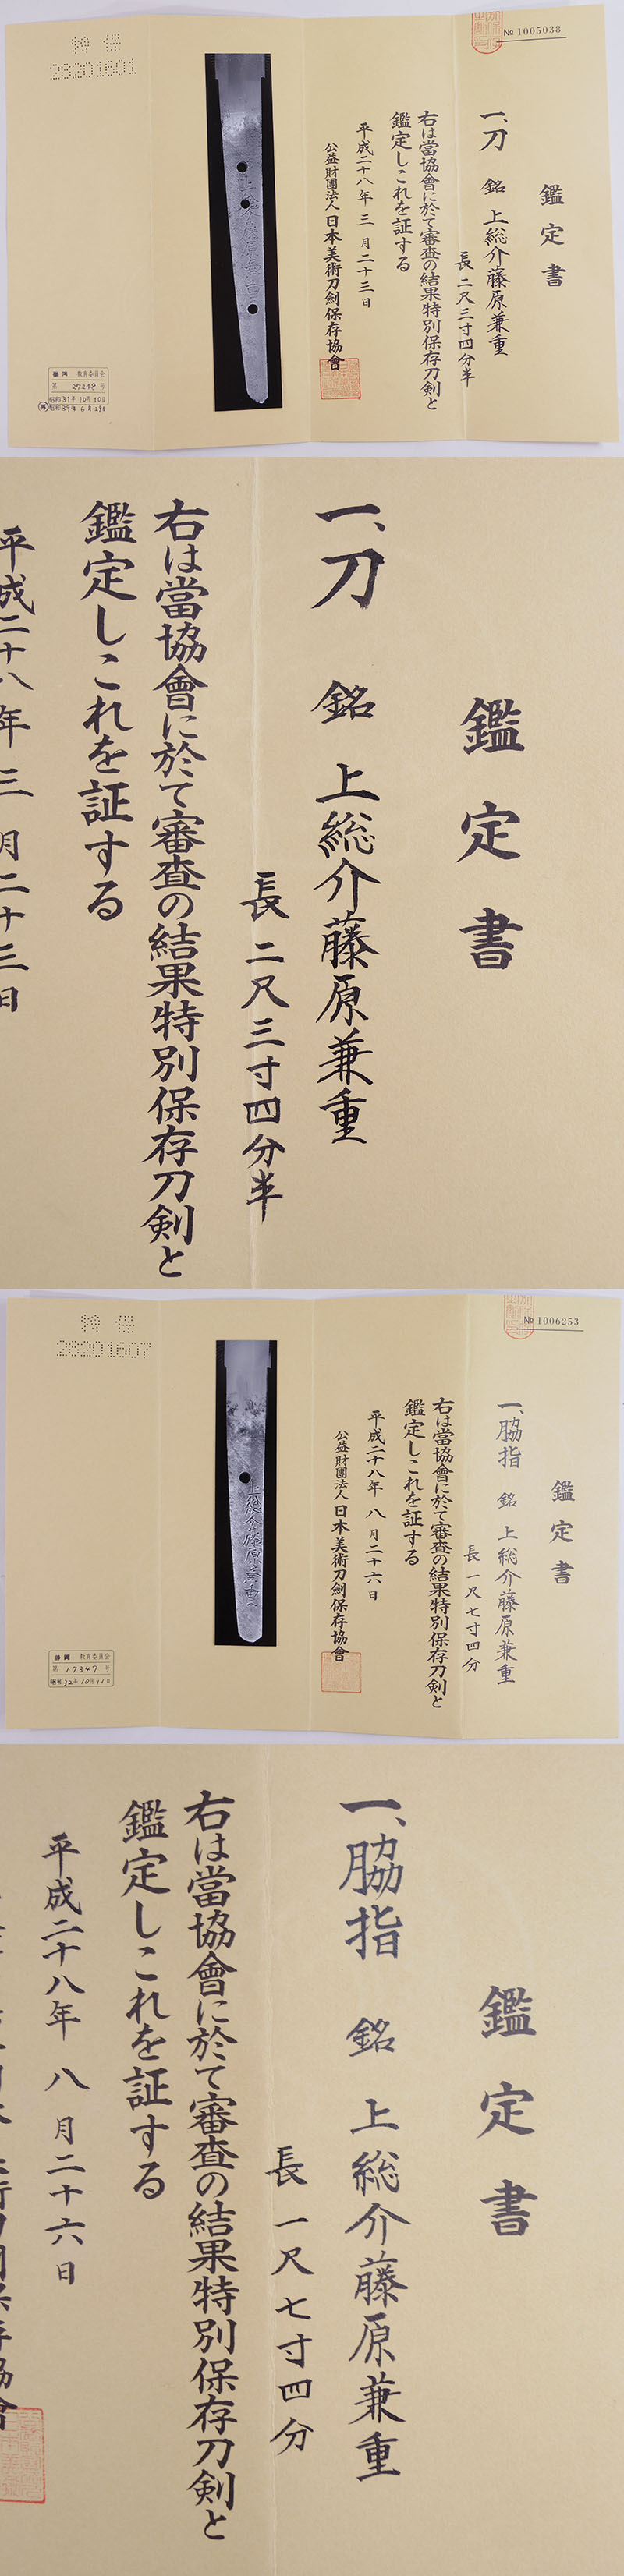 № 1005038
鑑定書
一、刀 銘 上総介藤原兼重
長 二尺三寸四分半
右は當協會に於て審査の結果特別保存刀剣と
鑑定しこれを証する
平成二十八年 三 月二十三日
公益財團法人 日本美術刀劍保存協會
特 保
28201601
教育委員会
第 27248 号
昭和31年10月10日
鑑定書
一、刀 銘 上総介藤原兼重
長 二尺三寸四分半
右は當協會に於て審査の結果特別保存刀剣と
鑑定しこれを証する
平成二十八年 三 月二十三日
№ 1006253
鑑定書
一、脇指 銘 上総介藤原兼重
長 一尺七寸四分
右は當協會に於て審査の結果特別保存刀剣と
鑑定しこれを証する
平成二十八年 八 月二十六日
公益財團法人 日本美術刀劍保存協會
特 保
28201607
静岡 教育委員会
第 17347 号
昭和32年10月11日
鑑定書
一、脇指 銘 上総介藤原兼重
長 一尺七寸四分
右は當協會に於て審査の結果特別保存刀剣と
鑑定しこれを証する
平成二十八年 八 月二十六日